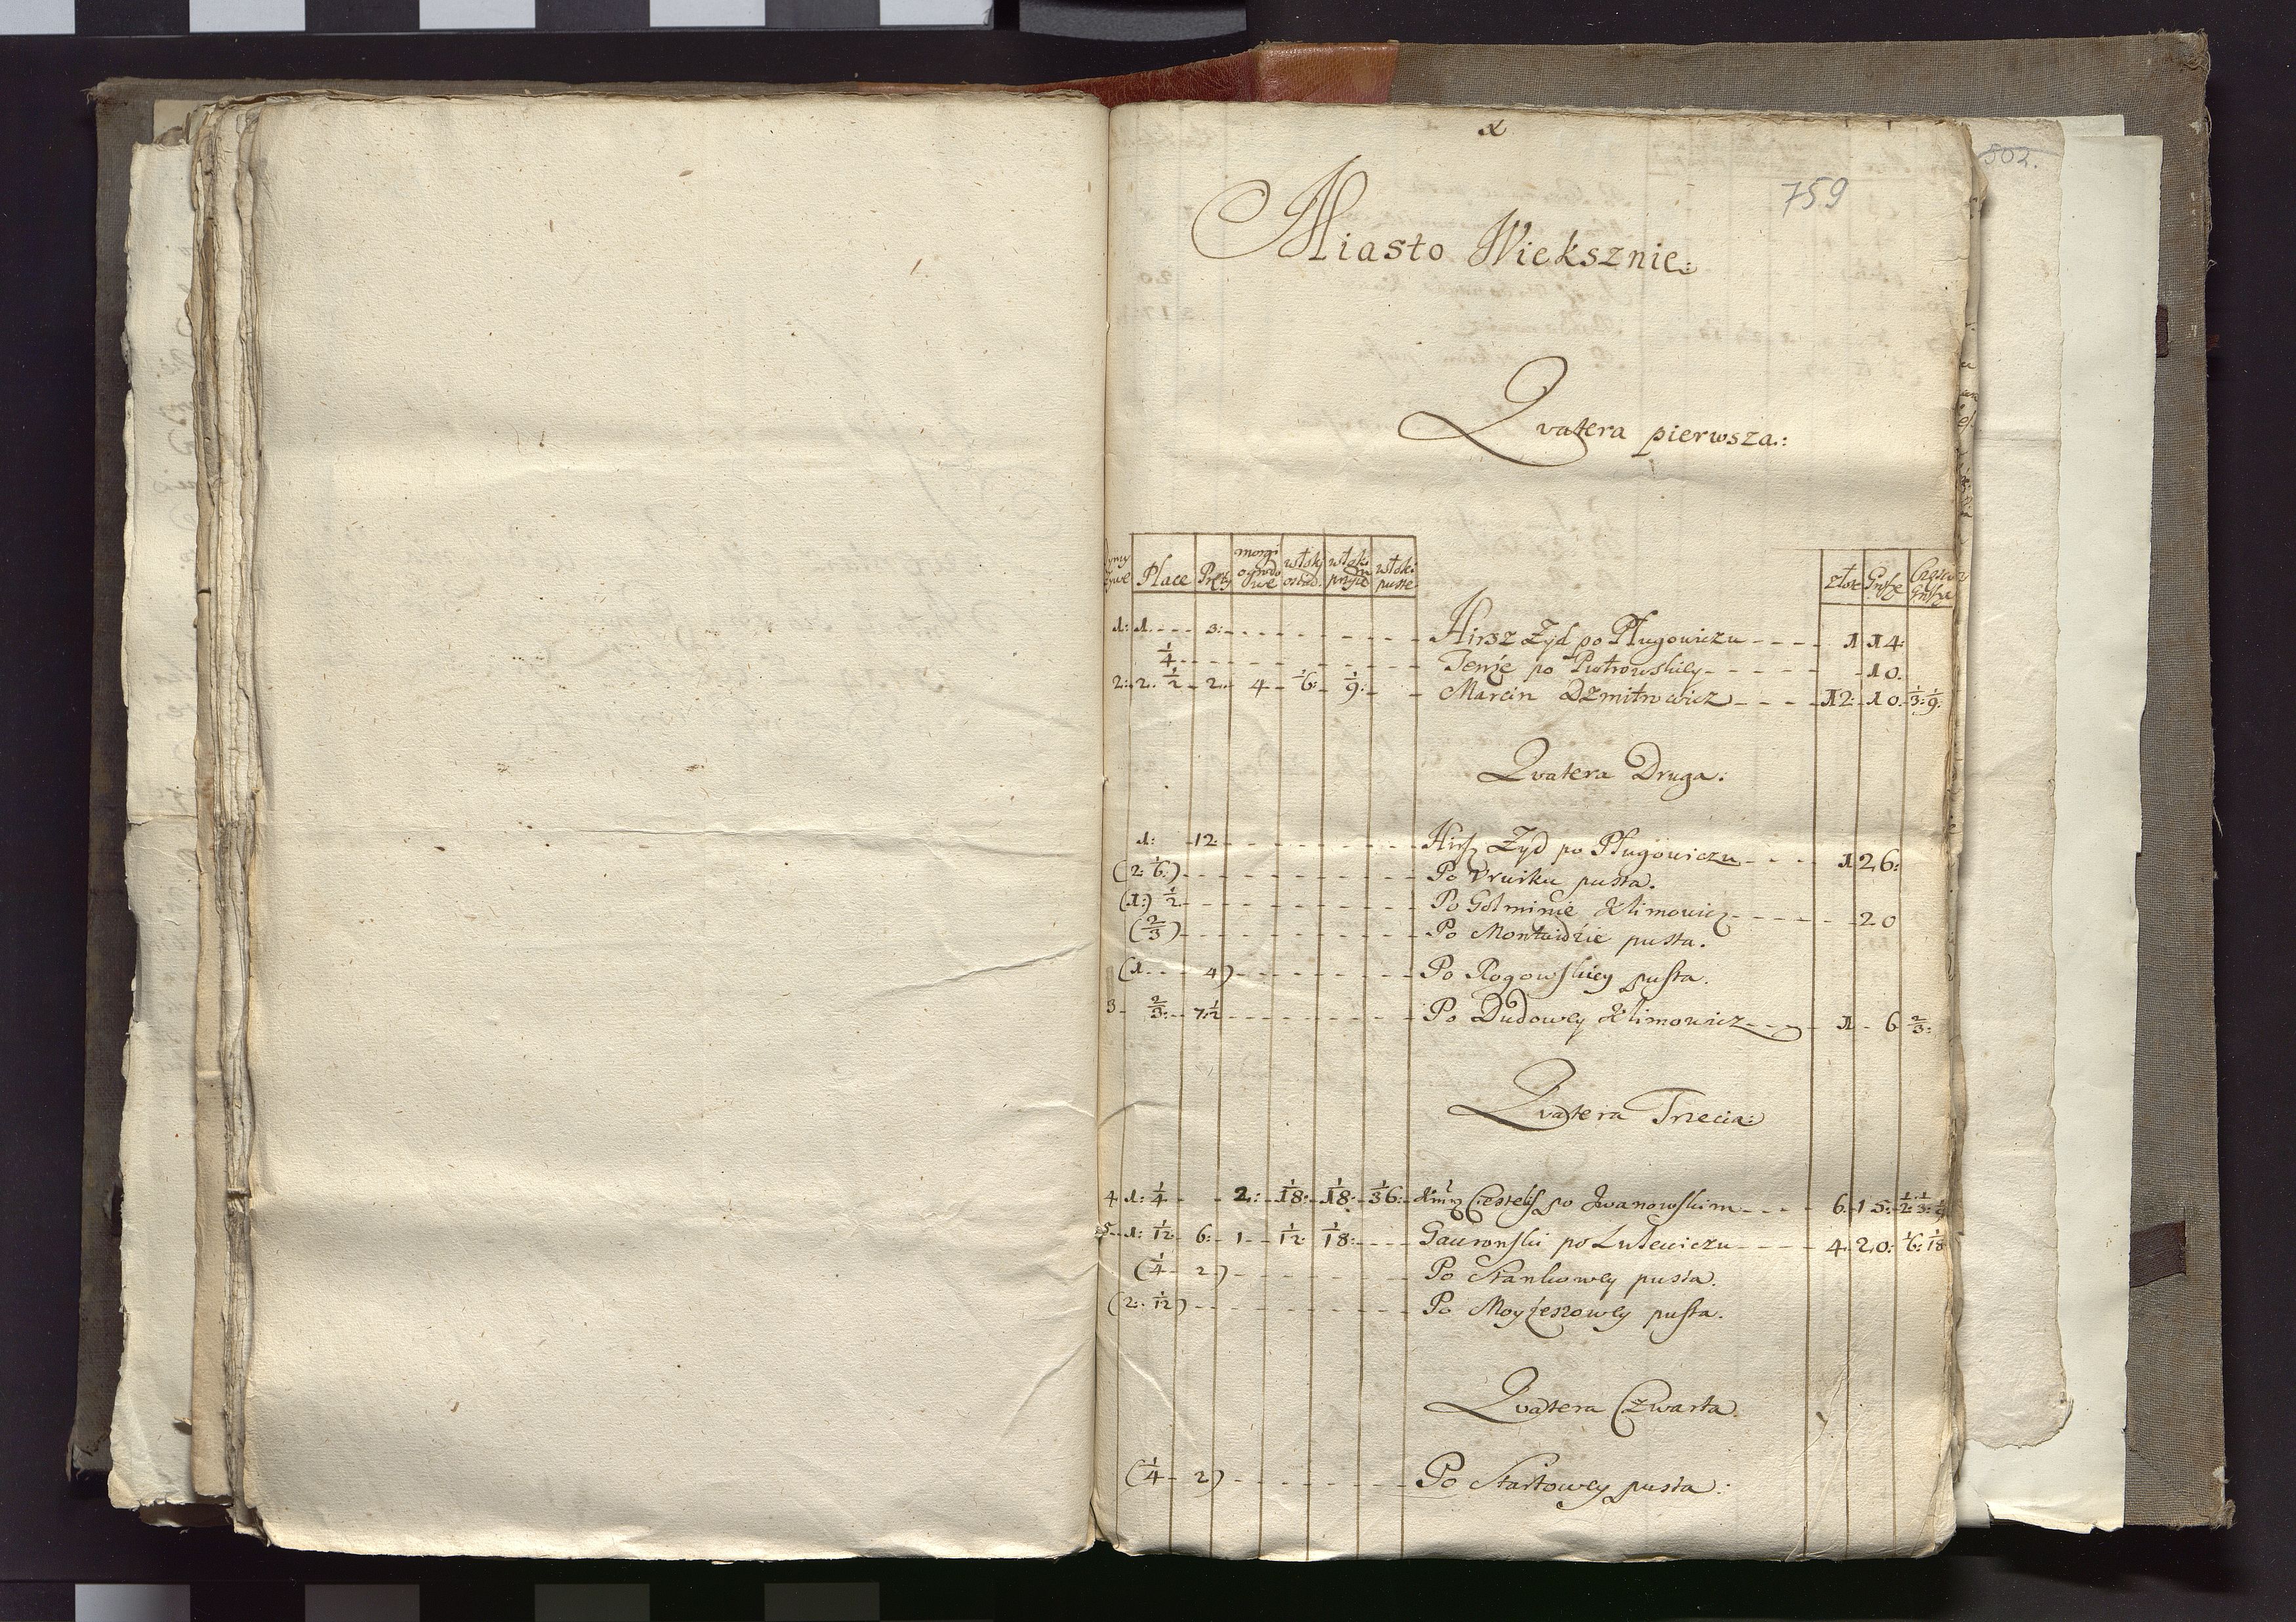 x
759
502.
Miasto Wieksznie:
Qvatera pierwsza:
Dymy żywe Place Pręty morgi ogrodowe włoki osiad. włoki przyię włoki puste złote Grosze Częśc. Grosza
1: 1. - - - 3: - - - Hirsz Żyd po Pługowiczu - - - - 1 14:
1/4 - - - Tenże po Piotrowskiey - - - - 10.
2: 2. 1/2 - 2. - 4 - 1/6: - 1/9: - - Marcin Dzmitrowicz - - - - 12: 10. 1/3: 1/9:
Qvatera Druga:
1: 12 - - - Hirsz Żyd po Pługowiczu - - - 1 26:
(2: 1/6.) - - - Po pusta.
(1:) 1/2 - - - Po Golminie Klimowicz - - - - 20
(2/3) - - - Po Montwidzie pusta.
(1. - - 4) - - - Po Rogowskiey pusta.
3 - 2/3: - 7 1/2 - - - Po Dudowey Klimowicz - - - 1 - 6 2/3:
Qvatera Trzecia:
4 1: 1/4 - - 2: - 1/18: - 1/18: - 1/36: - Cieselski po Jwanowskim - - - 6. 15: 1/2: 1/3: 1/9
5 - 1: 1/12 6: - 1 - - 1/12 1/18: - - - Gawronski po Lutewiczu - - - - 4. 20: 1/6: 1/18
(1/4 - 2.) - - - Po Stankowey pusta.
(2: 1/12) - - - Po Moyżeszowey pusta.
Qvatera Czwarta.
(1/4 - 2) - - - Po Startowey pusta: